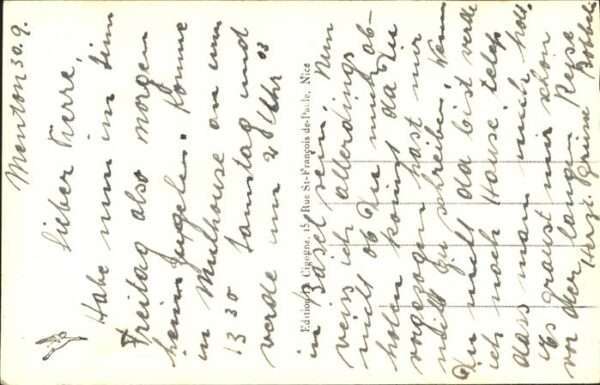 Menton 30. 9.
Lieber Pierre,
Habe nun im Sinn
Freitag also morgen
heim zugehen. Komme
in Mulhouse an um
13 30 Samstag und
werde um 2 Uhr 03
in Basel sein. Nun
weiss ich allerdings
nicht ob Du mich ab-
holen kommst da Du
vorgezogen hast mir
nicht zu schreiben. Wenn
Du nicht da bist werde
ich nach Hause telef.
dass man mich holt.
Es graust mir schon
vor der langen Reise
Herzl. Grüsse
Editions Cigogne, 15, Rue St-François-de-Paule, Nice